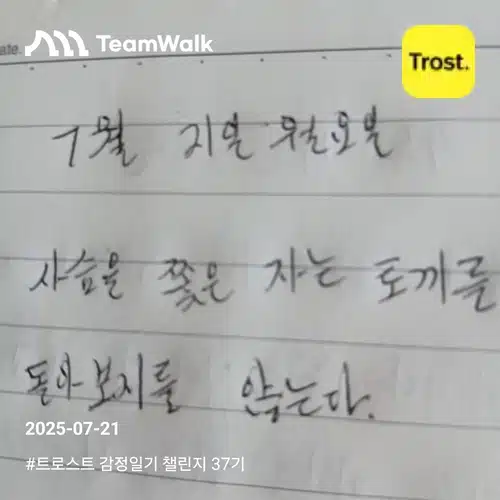 ate.
TeamWalk
Trost.
7월 21일 월요일
사슴을 쫓은 자는 토끼를
돌아보지를 않는다.
2025-07-21
#트로스트 감정일기 챌린지 37기